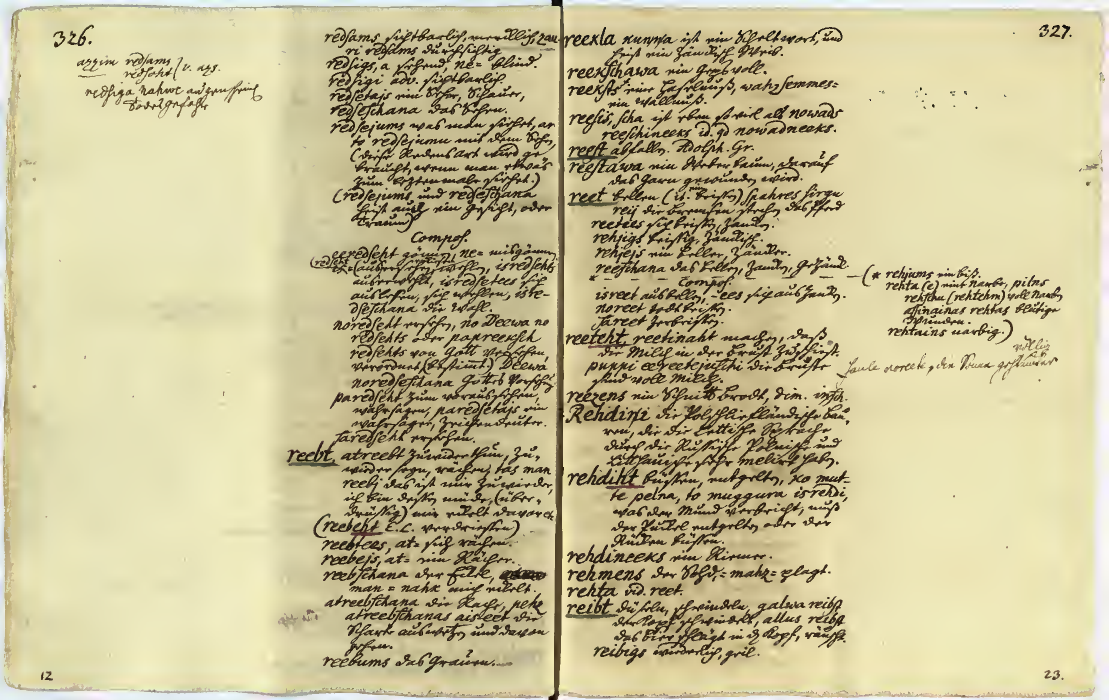 326.
azzim redsams
redsoht (v. azs.
redsiga nahwe augenscheinl
Todesgefahr
redsams, sichtbarlich, zau
ri redsams durchsichtig
redsigs, a sehend ne= blind.
redsigi adv. sichtbarlich
redsetajs ein Seher, Schauer,
redseschana das Sehen.
redsejums was man siehet, ar
to redsejumu mit dem Sehn,
(diese Redensart wird ge
braucht, wenn man etwas
zum letztenmale siehet.)
(redsejums, und redseschana
heist auch ein Gesicht, oder
Traum)
Compos.
eeredseht gönnen, ne= misgönnen
isredseht
auserwehlt, isredsetees sich
auslesen, sich wehlen, isre-
dseschana die Wahl.
noredseht ersehen, no Deewa no
redsehts oder papreeksch
redsehts von Gott versehen,
verordnet (bestimt) Deewa
noredseschana Gottes Vorsehu
paredseht zum voraus sehen,
wahrsagen, paredsetajs ein
wahrsager, Zeichendeuter.
saredseht ersehen.
reebt, atreebt zuwider thun, zu,
wieder seyn, rächen; tas man
reeb, das ist mir zuwieder,
ich bin dessen müde, (über,
drüssig) mir ekelt davor
(reebeht E.L. verdriessen)
reebtees, at= sich rächen.
reebejs, at= ein Rächer.
reebschana der Eckel,
man = nahk mich ekelt.
atreebschana die Rache, pehz
atreebschanas aiseet die
Scharte auswetzen und davon
gehen.
reebums das Grauen.
12
327.
reekla kunna ist ein Scheltwort, und
heist ein zänkisch Weib.
reekschawa ein Gepsvoll.
reeksts eine Haselnuß, wahzsemmes=
ein Wallnuß.
reesis, scha ist eben so viel als nowads
reeschineeks id. qd nowadneeks.
reest abfallen. Adolph. Gr.
reestawa ein Weberbaum, darauf
das Garn gewunden wird.
reet bellen (it. beissen) spahres sirgu
reij die bremsen stechen das Pferd
reetees sich beissen, zanken.
rehjigs beissig, zänkisch.
rehjejs ein Beller, Zänker.
reeschana das bellen, Zanken, Gezänk
Compos.
isreet ausbellen, -ees sich auszank.
noreet todtbeissen.
sareet zerbeissen.
(* rehjums ein biß.
rehta (e) eine narbe, pilns
rehschu (rehtehm) voll Narben
asinainas rehtas blutige
Wunden.
rehtains narbig.)
reeteht, reetinaht machen, daß
die Milch in der brust zuschiest.
puppi eereetejuschi die brüste
sind voll Milch.
völlig
saule noreete, die Sonne gehet unter
reezens ein Schnitt brodt, dim. insch.
Rehdini die Polschliefländische Bau,
ren, die die Lettische Sprache
durch die Russische Polnische und
Litthauische sehr melirt haben.
rehdiht büssen, entgelten, ko mut-
te pelna, to muggura isrehdi,
was der Mund verbricht, muß
der Puckel entgelten oder der
Rücken büssen.
rehdineeks ein Riemer.
rehmens der Sohd, = mahz = plagt.
rehta vid. reet.
reibt düseln, schwindeln, galwa reibst
der Kopf schwindelt, allus reibst
das bier schlägt in d Kopf, räuscht.
reibigs wiederlich, geil.
23.